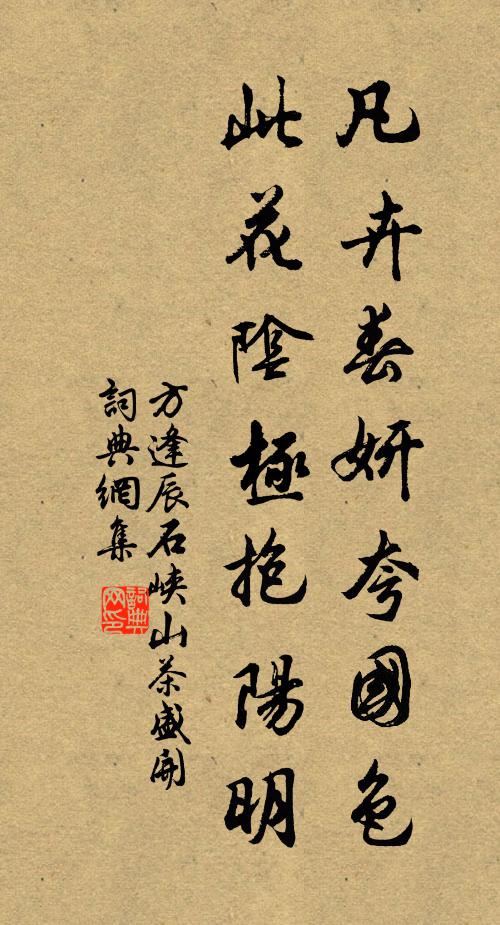 凡卉春妍夸國色
此花陰極抱陽明
方逢辰石峽山茶盛開
詞典網集
詞典
网印